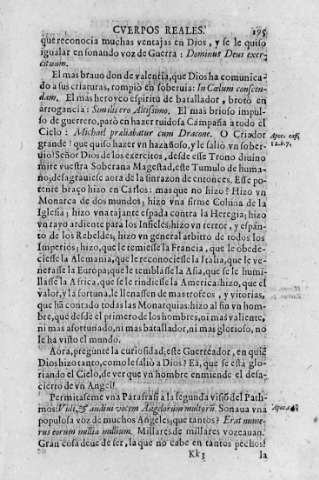 CVERPOS REALES. 195
que reconocia muchas ventajas en Dios, y se le quiso
igualar en sonando voz de Guerra: Dominus Deus exer-
cituum.
El mas brauo don de valentia, que Dios ha comunica-
do a sus criaturas, rompiò en soberuia: In Cælum conscen-
dam. El mas heroyco espiritu de batallador, brotò en
arrogancia: Similis ero Altissimo. El mas brioso impul-
so de guerrero, parò en hazer ruidosa Campaña a todo el
Cielo: Michael præliabatur cum Dracone. O Criador
grande! que quiso hazer vn hazañoso, y le saliò vn sober-
uio! Señor Dios de los exercitos, desde esse Trono diuino
mire vuestra Soberana Magestad, este Tumulo de huma-
no; desagrauiese aora de la sinrazon de entonces. Esse po-
tente braço hizo en Carlos: mas que no hizo? Hizo vn
Monarca de dos mundos; hizo vna firme Coluna de la
Iglesia; hizo vna tajante espada contra la Heregia; hizo
vn rayo ardiente para los Infieles; hizo vn terror, y espan-
to de los Rebeldes; hizo vn general arbitro de todos los
Imperios; hizo, que le temiesse la Francia, que le obede-
ciesse la Alemania, que le reconociesse la Italia, que le ve-
nerasse la Europa; que le temblasse la Asia, que se le humi-
llasse la Africa, que se le rindiesse la America: hizo, que el
valor, y la fortuna, le llenassen de mas trofeos, y vitorias,
que hã contado todas las Monarquias: hizo al fin vn hom-
bre, que desde el primero de los hombres, ni mas valiente,
ni mas afortunado, ni mas batallador, ni mas glorioso, no
le ha visto el mundo.
Aora, pregunte la curiosidad; este Guerreador, en quiẽ
Dios hizo tanto, como le salio a Dios? Eà, que se està glo-
riando el Cielo, de ver que vn hombre enmiende el desa-
cierto de vn Angel!
Permitaseme vna Parafrasi a la segunda visiõ del Path-
mos: Vidi, & audiui vocem Angelorum multorũ. Sonaua vna
populosa voz de muchos Angeles; que tantos? Erat nume-
rus eorum millia millium. Millares de millares vozeauan.
Gran cosa deue de ser, la que no cabe en tantos pechos!
Kk3 la
Apoc. cap.
12. v. 7.